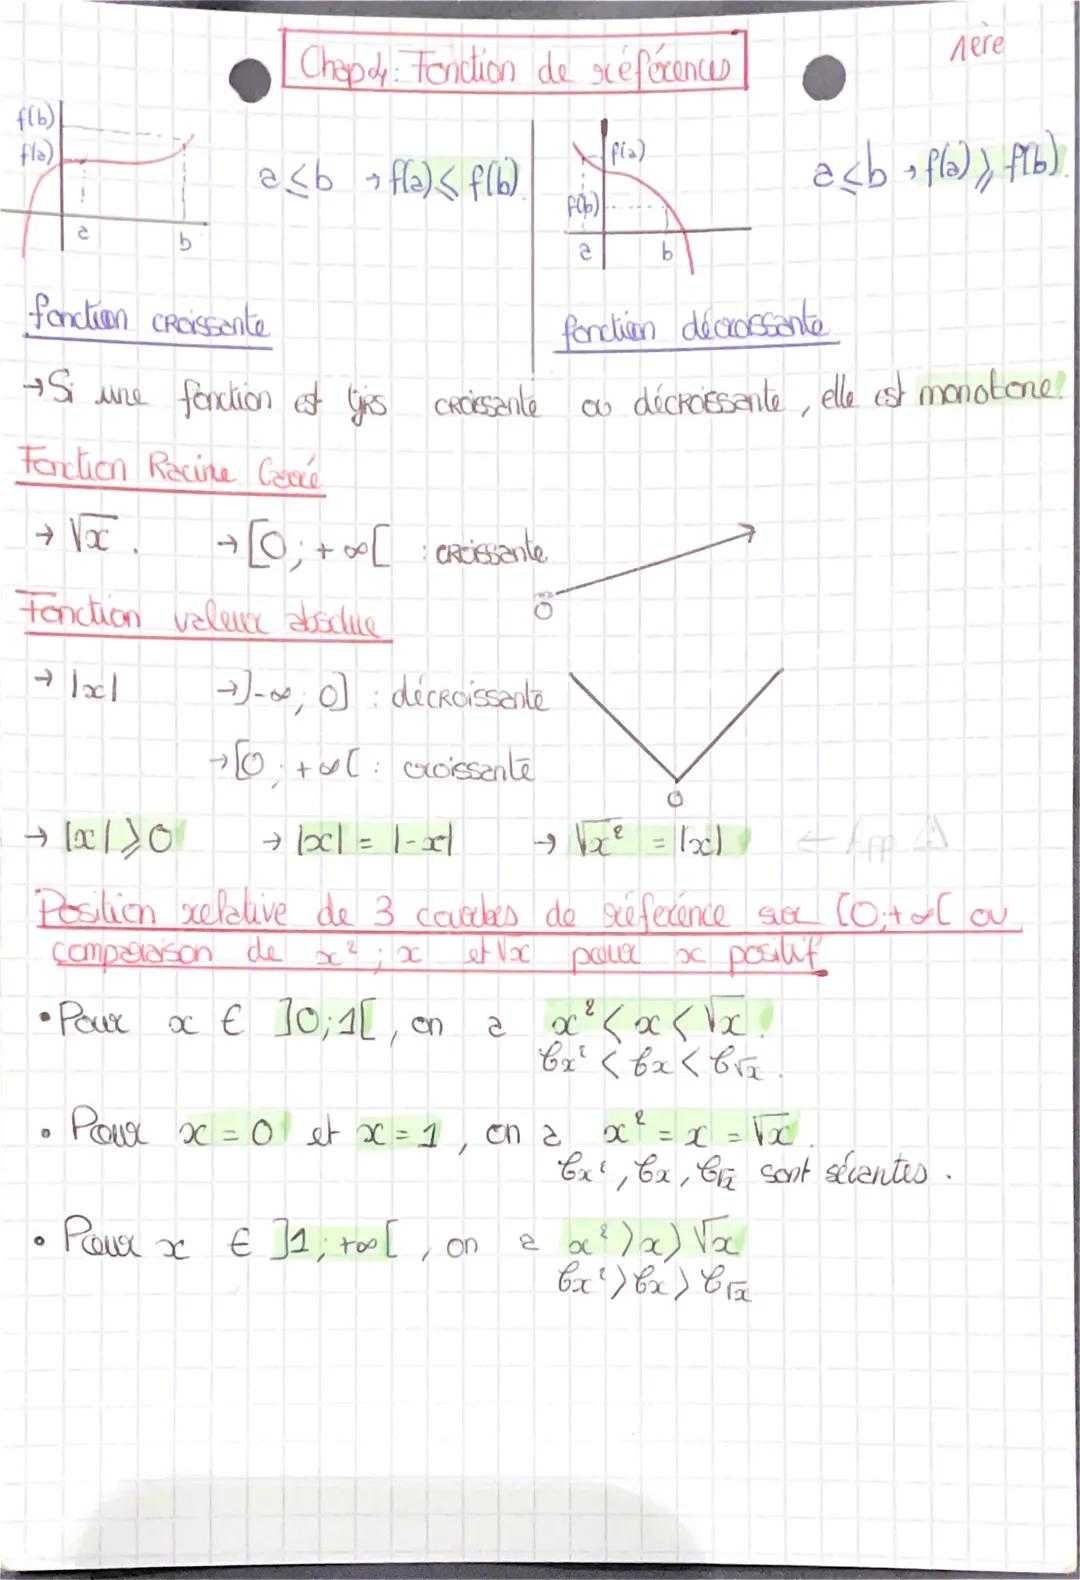 1ère
Chap 4: Fonction de références
f(b)
f(a)
a b
a ≤ b → f(a) ≤ f(b).
f(a)
f(b)
a b
a ≤ b → f(a) ≥ f(b).
fonction croissante
fonction décroissante
→ Si une fonction est tjrs croissante ou décroissante, elle est monotone!
Fonction Racine Carré
→ √x. → [0; +∞[ : croissante
0
Fonction valeur absolue
→ |x| → ]-∞; 0] : décroissante
→ [0; +∞[ : croissante
0
→ |x| ≥ 0 → |x| = |-x| → √x² = |x| ← App ⚠
Position relative de 3 courbes de référence sur [0;+∞[ ou
comparaison de x²; x et √x pour x positif.
• Pour x ∈ ]0;1[, on a x² < x < √x.
𝒞x² < 𝒞x < 𝒞√x.
• Pour x = 0 et x = 1, on a x² = x = √x.
𝒞x², 𝒞x, 𝒞√x sont sécantes.
• Pour x ∈ ]1; +∞[, on a x² > x > √x
𝒞x² > 𝒞x > 𝒞√x